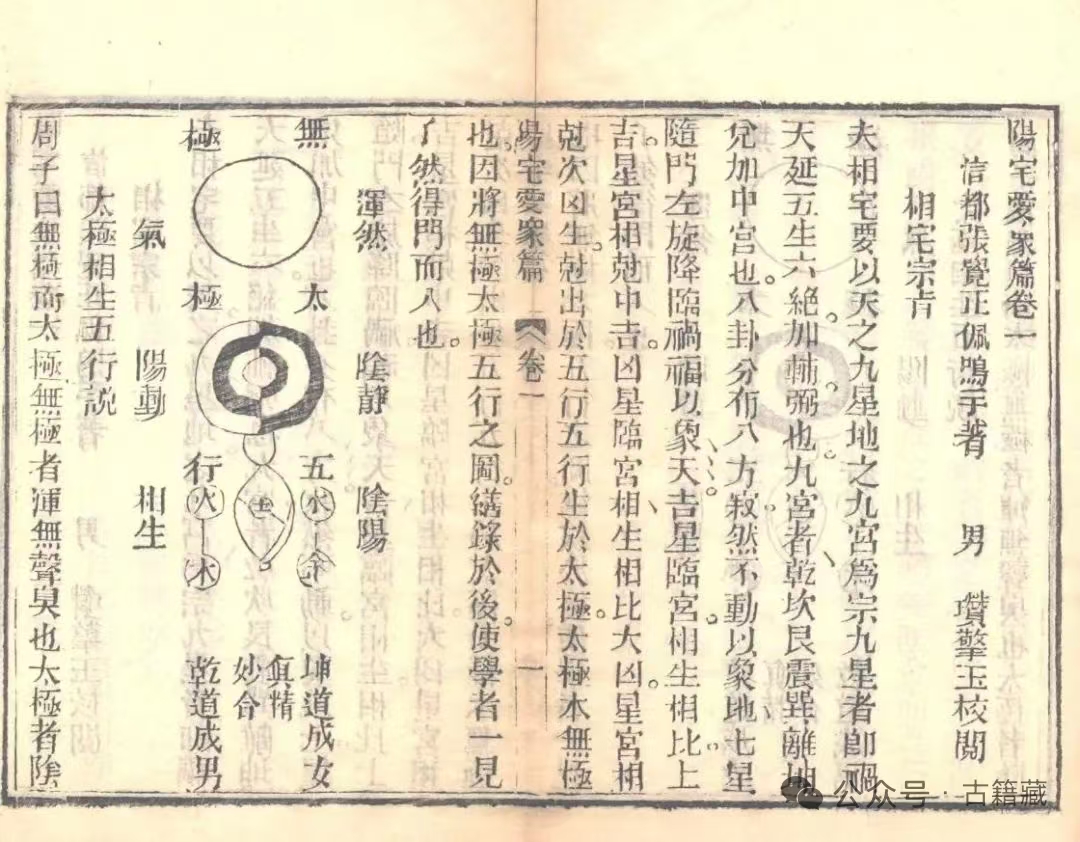 陽宅愛衆篇卷一
信都張覺正佩鳴手著 男 瓚擎玉校閱
相宅宗旨
夫相宅要以天之九星地之九宮爲宗九星者即禍
天延五生六絶加輔弼也九宮者乾坎艮震巽離坤
兌加中宮也八卦分布八方寂然不動以象地七星
隨門左旋降臨禍福以象天吉星臨宮相生相比上
吉星宮相尅中吉凶星臨宮相生相比大凶星宮相
尅次凶生尅出於五行五行生於太極太極本無極
陽宅愛衆篇 卷一 一
也因將無極太極五行之圖繕錄於後使學者一見
了然得門而入也
渾然 陰靜 陰陽
無 太 五 水 金 坤道成女
土 眞精
妙合
極 極 行 火 木 乾道成男
氣 陽動 相生
太極相生五行說
周子曰無極而太極無極者渾無聲臭也太極者陰
公众号·古籍藏